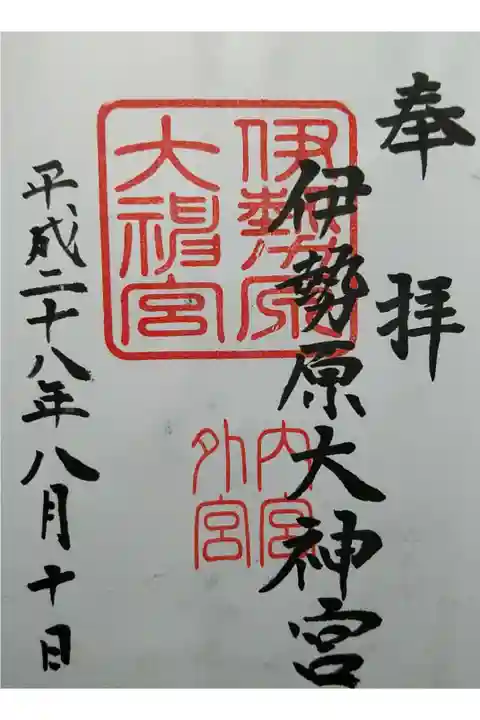 奉拝
伊勢原大神宮
伊勢原
大神宮
内宮
外宮
平成二十八年八月十日